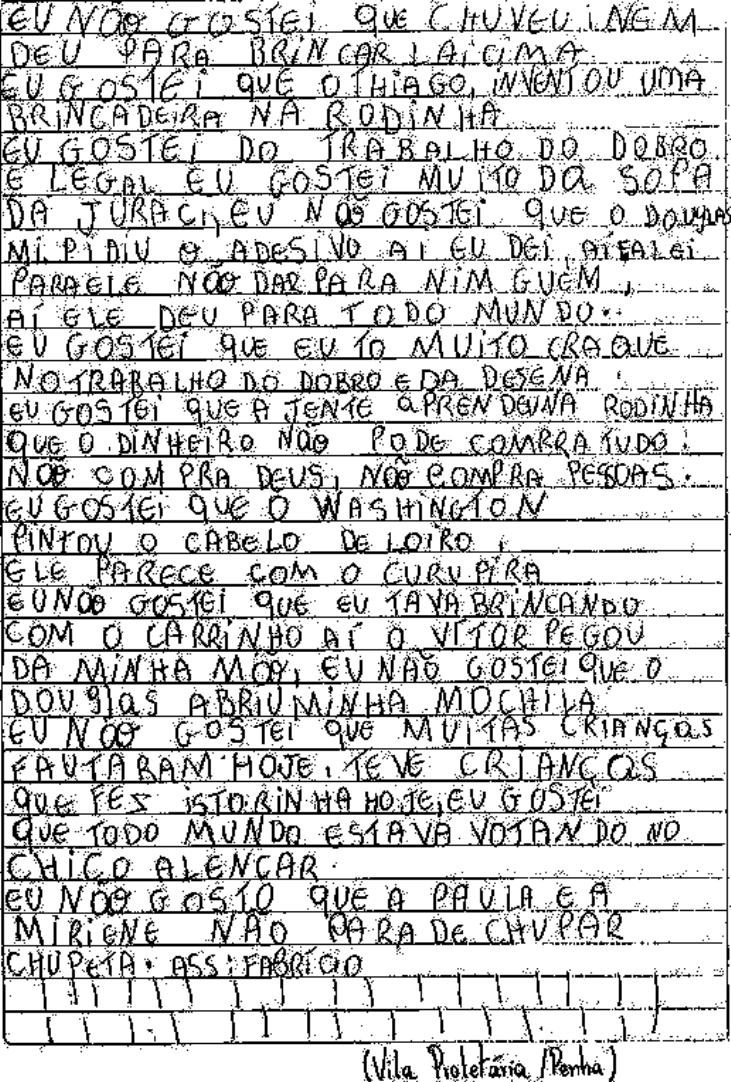 EU NÃO GOSTEI QUE CHUVEU INEM
DEU PARA BRINCAR LAICIMA
EU GOSTEI QUE O THIAGO, INVENTOU UMA
BRINCADEIRA NA RODINHA
EU GOSTEI DO TRABALHO DO DOBRO
E LEGAL EU GOSTEI MUITO DA SOPA
DA JURACI, EU NÃO GOSTEI QUE O DOUGLAS
MI PIDIU O ADESIVO AI EU DEI, AÍ FALEI
PARA ELE NÃO DAR PARA NIMGUEM,
AÍ ELE DEU PARA TODO MUNDO..
EU GOSTEI QUE EU TO MUITO CRAQUE
NO TRABALHO DO DOBRO E DA DESENA.
EU GOSTEI QUE A JENTE APRENDEU NA RODINHA
QUE O DINHEIRO NÃO PODE COMPRRA TUDO:
NÃO COMPRA DEUS, NÃO COMPRA PESSOAS.
EU GOSTEI QUE O WASHINGTON
PINTOU O CABELO DE LOIRO,
ELE PARECE COM O CURUPIRA
EU NÃO GOSTEI QUE EU TAVA BRINCANDO
COM O CARRINHO AÍ O VITOR PEGOU
DA MINHA MÃO, EU NÃO GOSTEI QUE O
DOUGLAS ABRIU MINHA MOCHILA
EU NÃO GOSTEI QUE MUITAS CRIANÇAS
FAUTARAM HOJE, TEVE CRIANÇAS
QUE FES ISTORINHA HOJE, EU GOSTEI
QUE TODO MUNDO ESTAVA VOTANDO NO
CHICO ALENCAR.
EU NÃO GOSTO QUE A PAULA E A
MIRIENE NÃO PARA DE CHUPAR
CHUPETA. ASS: FABRÍCIO
(Vila Proletária /Penha)